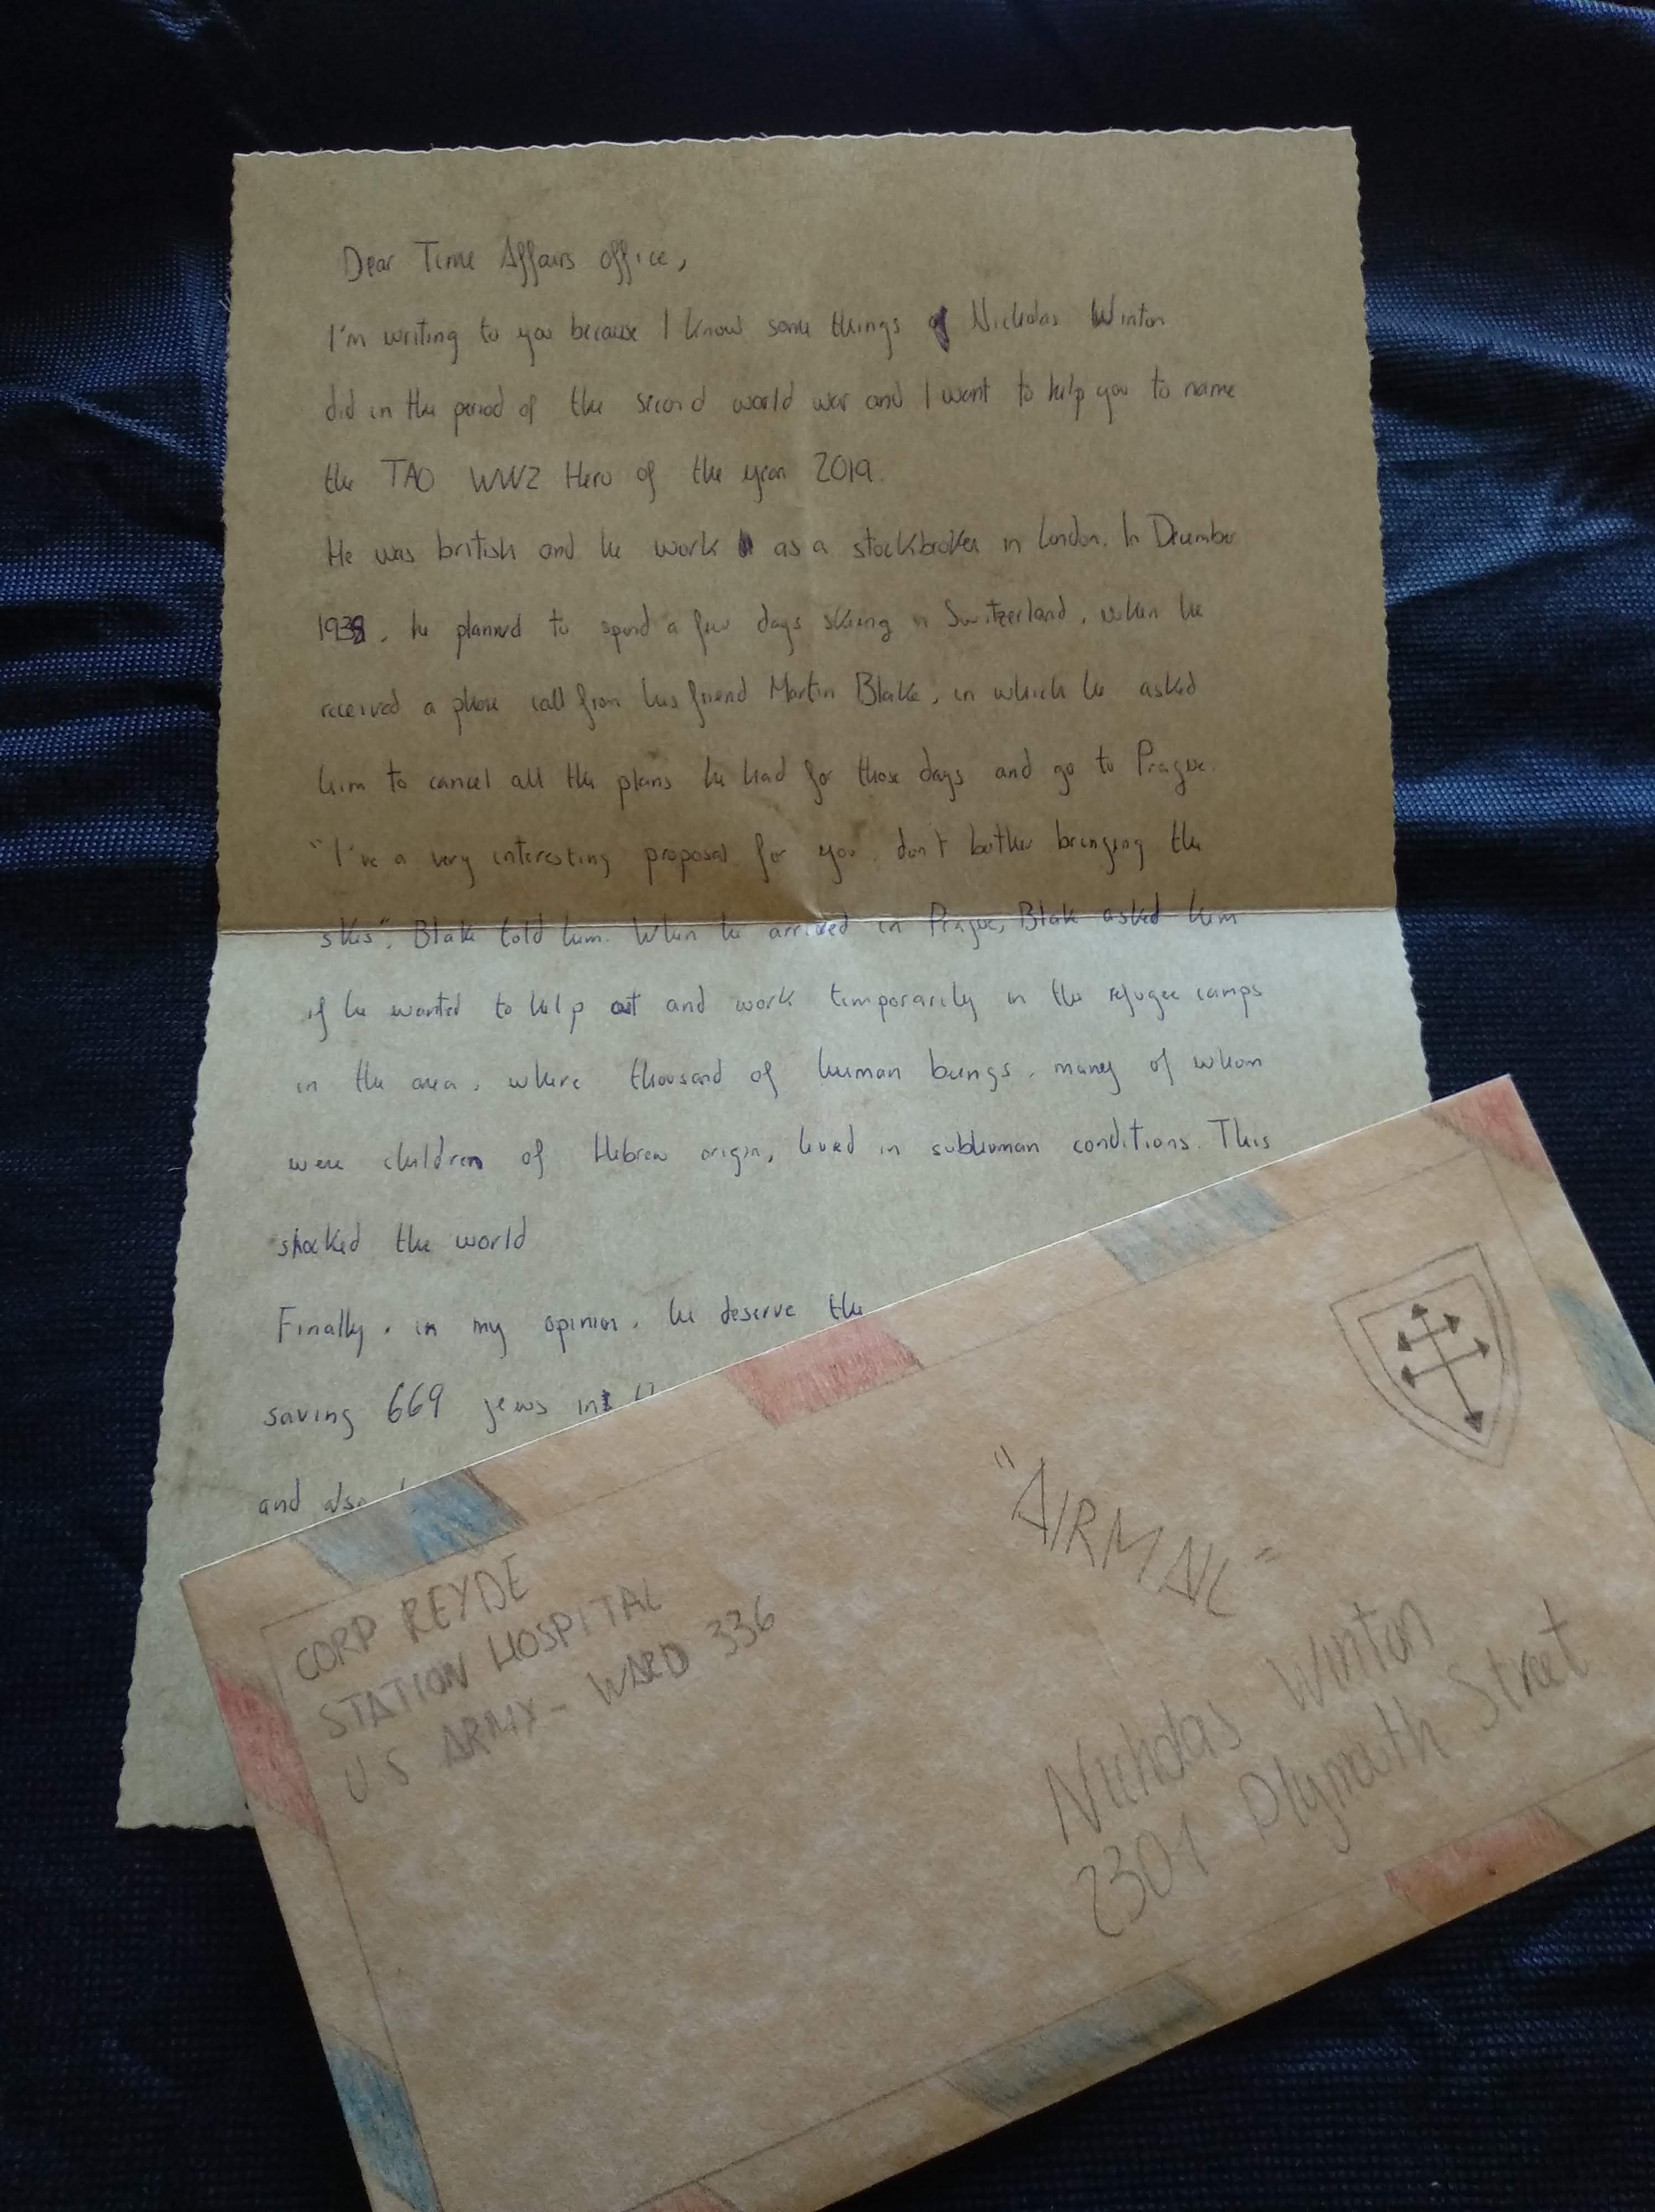 Dear Time Affairs office,
I'm writing to you because I know some things of Nicholas Winton
did in the period of the second world war and I want to help you to name
the TAO WW2 Hero of the year 2019.
He was british and he work as a stockbroker in London. In December
1938, he planned to spend a few days skiing in Switzerland, when he
received a phone call from his friend Martin Blake, in which he asked
him to cancel all the plans he had for those days and go to Prague.
"I've a very interesting proposal for you, don't bother bringing the
skis", Blake told him. When he arrived in Prague, Blake asked him
if he wanted to help out and work temporarily in the refugee camps
in the area, where thousand of human beings, many of whom
were children of Hebrew origin, lived in subhuman conditions. This
shocked the world
Finally, in my opinion, he deserve the
saving 669 jews in
and also
CORP REYDE
STATION HOSPITAL
US ARMY - WARD 336
"AIRMAIL"
Nicholas Winton
2301 Plymouth Street